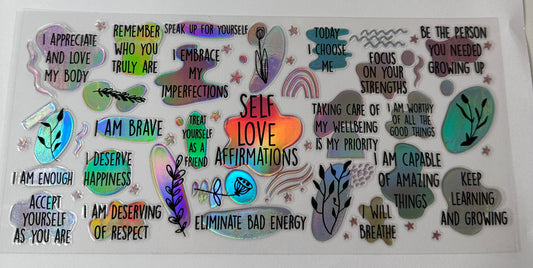 I APPRECIATE
AND LOVE
MY BODY
REMEMBER
WHO YOU
TRULY ARE
SPEAK UP FOR YOURSELF
I EMBRACE
MY
IMPERFECTIONS
TODAY
I CHOOSE
ME
BE THE PERSON
YOU NEEDED
GROWING UP
FOCUS
ON YOUR
STRENGTHS
I AM BRAVE
TREAT
YOURSELF
AS A
FRIEND
SELF
LOVE
AFFIRMATIONS
TAKING CARE OF
MY WELLBEING
IS MY PRIORITY
I AM WORTHY
OF ALL THE
GOOD THINGS
I AM ENOUGH
I DESERVE
HAPPINESS
I AM CAPABLE
OF AMAZING
THINGS
KEEP
LEARNING
AND GROWING
ACCEPT
YOURSELF
AS YOU ARE
I AM DESERVING
OF RESPECT
ELIMINATE BAD ENERGY
I WILL
BREATHE